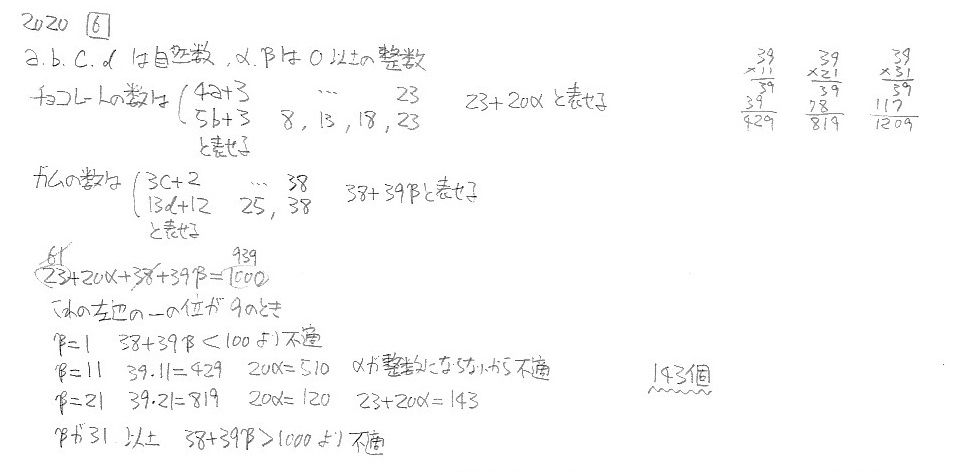 2020 6
a.b.c.d は自然数、α、βは0以上の整数
チョコレートの数は 4a+3 … 23
5b+3 8, 13, 18, 23 23+20α と表せる
と表せる
ガムの数は 3c+2 … 38
13d+12 25, 38 38+39βと表せる
と表せる
61 939
23+20α+38+39β=1000
これの左辺の一の位が9のとき
β=1 38+39β<100より不適
β=11 39・11=429 20α=510 αが整数にならないから不適
β=21 39・21=819 20α=120 23+20α=143
βが31以上 38+39β>1000より不適
143個
39
×11
39
39
429
39
×21
39
78
819
39
×31
39
117
1209